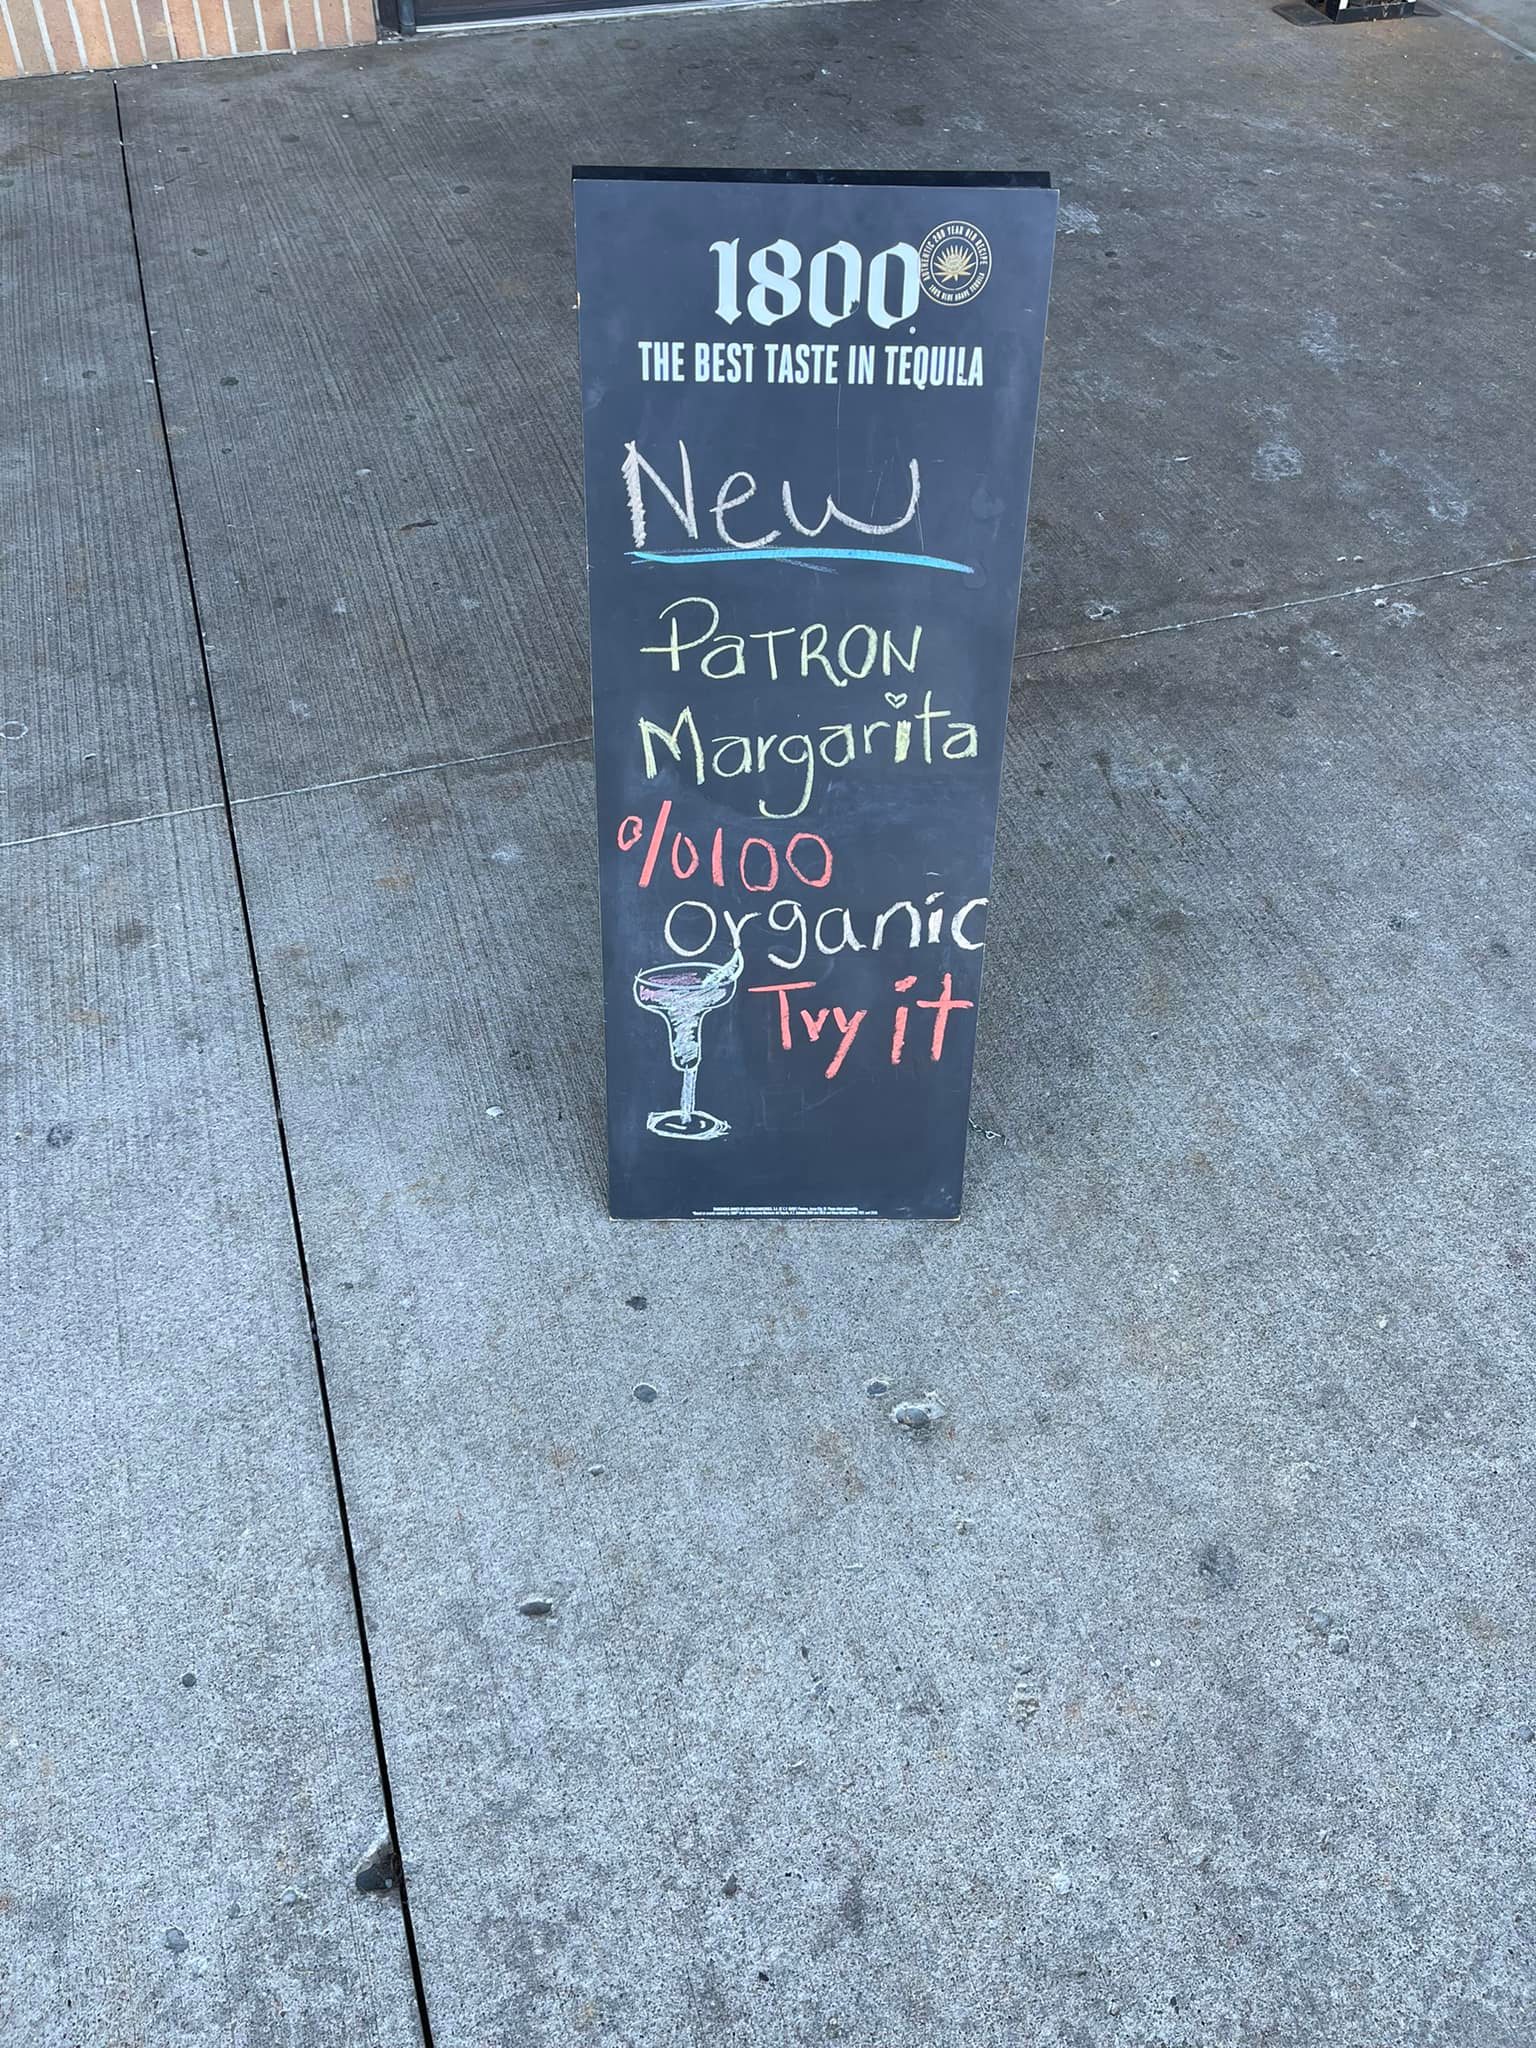 1800
AUTHENTIC 200 YEAR OLD RECIPE
100% BLUE AGAVE TEQUILA
THE BEST TASTE IN TEQUILA
New
PaTRON
Margarita
%100
organic
Try it